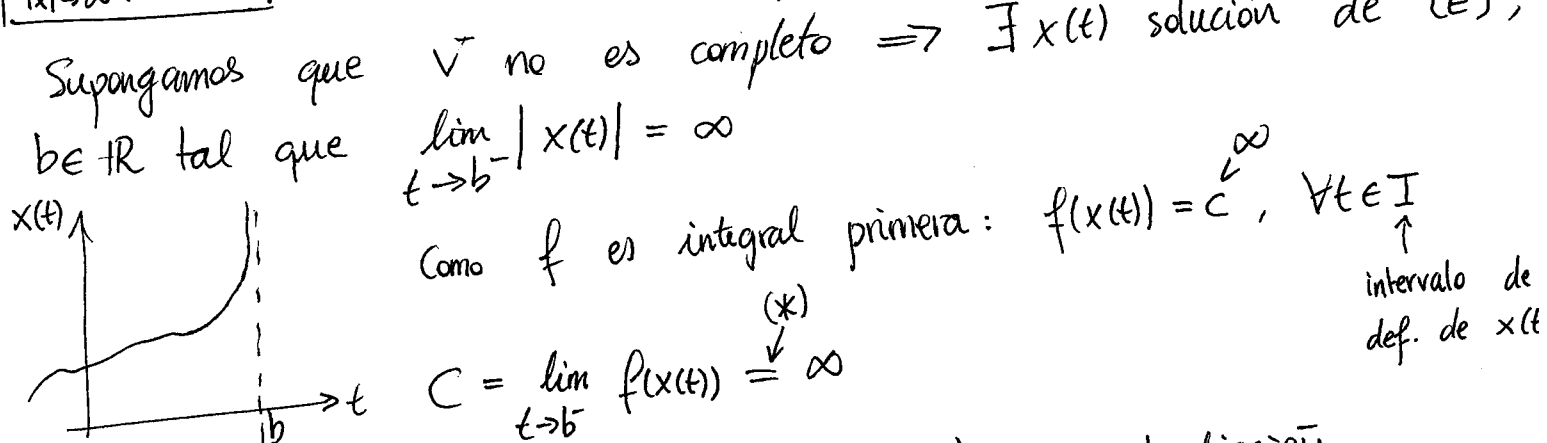 Supongamos que V no es completo => ∃ x(t) solución de (E),
b∈ℝ tal que lim |x(t)| = ∞
t→b⁻
x(t)
Como f es integral primera: f(x(t)) = C, ∀t∈I
∞
↑
intervalo de
def. de x(t
(*)
C = lim f(x(t)) = ∞
t→b⁻
t
b